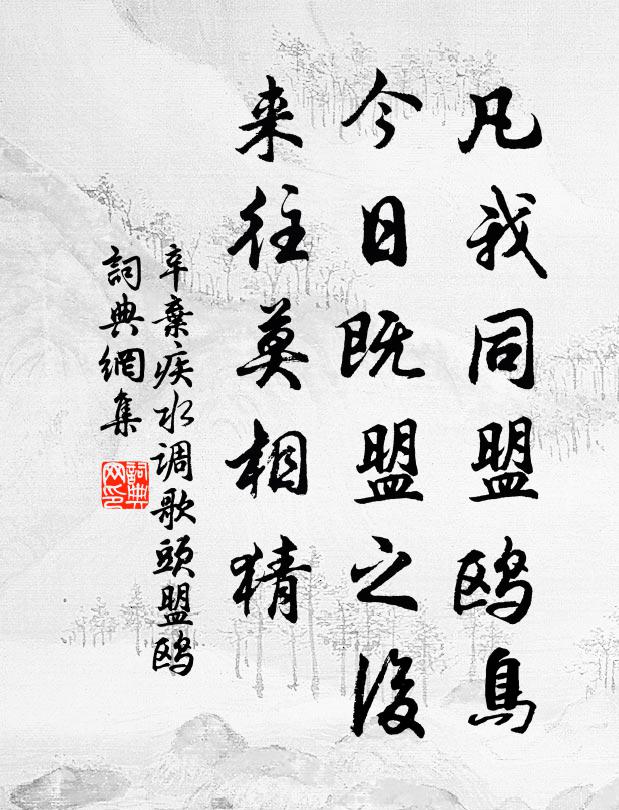 凡我同盟鸥鳥
今日既盟之後
来往莫相猜
辛棄疾水调歌頭盟鸥
詞典網集
詞典网印